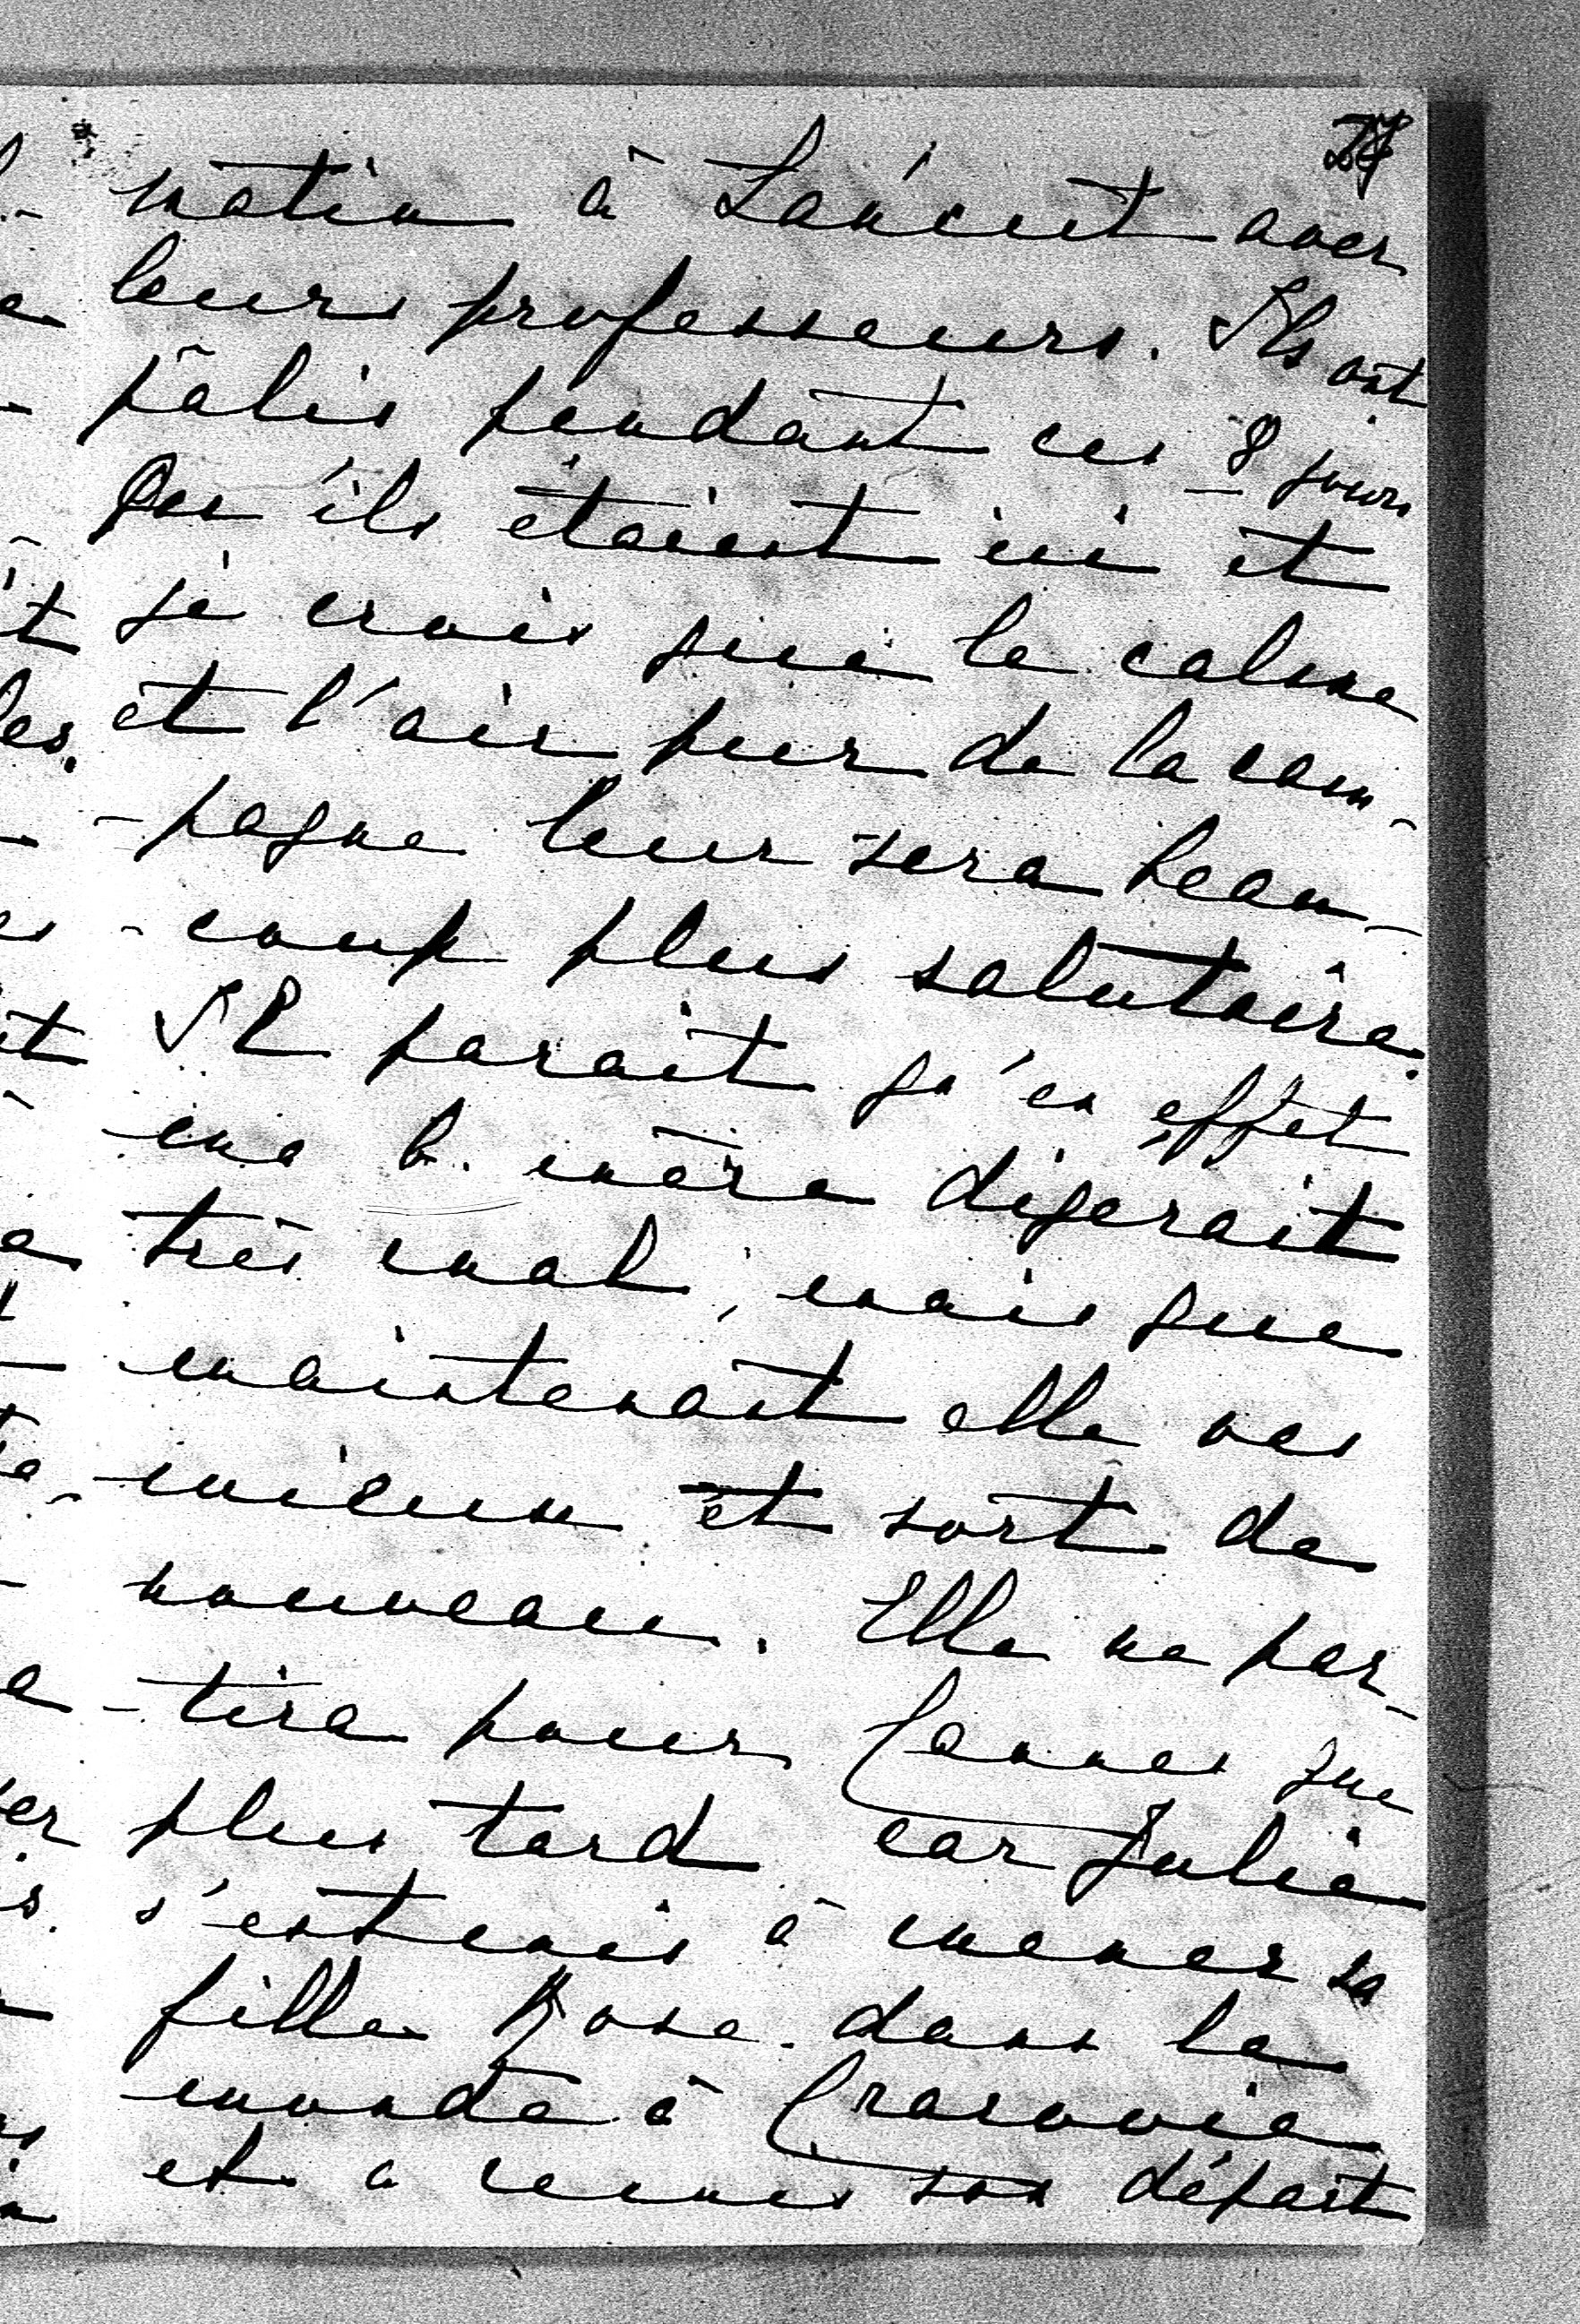 matin à Łańcut avec
leurs professeurs. Ils ont
pâlis pendant ces 8 jours
qu'ils étaient ici et
je crois que le calme
et l'air pur de la cam-
-pagne leur sera beau-
-coup plus salutaire.
Il parait qu'en effet
ma b. mère digerait
très mal, mais que
maintenant elle va
mieux et sort de
nouveau. Elle ne par-
-tira pour Cannes que
plus tard car Julie
s'est mis à mener sa
fille Rose dans le
monde à Cracovie
et a remis son départ